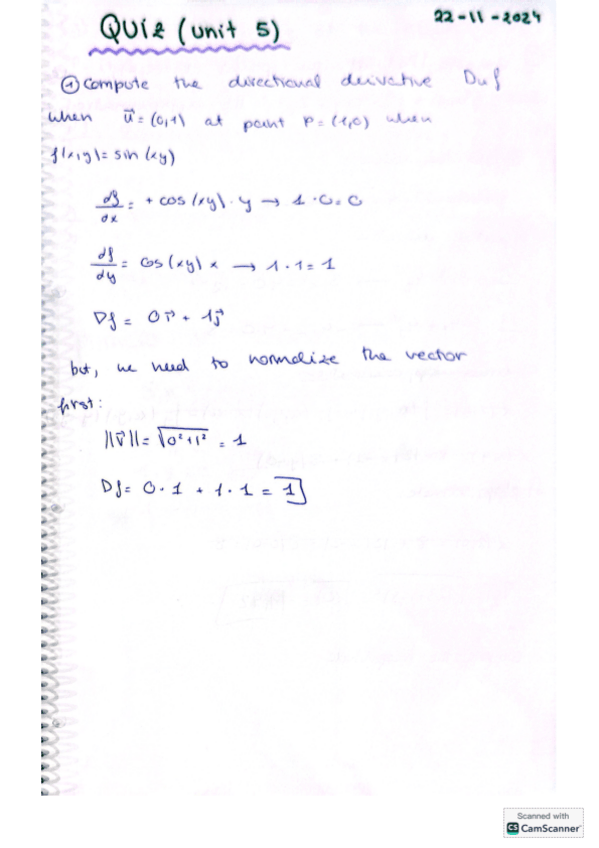 QUIZ (unit 5)
22-11-2024
① Compute the directional deivative Duf
when u⃗ = (0,1) at point P = (1,0) when
f(x,y) = sin (xy)
df/dx = + cos (xy) · y → 1 · 0 = 0
df/dy = cos (xy) x → 1 · 1 = 1
Df = 0i⃗ + 1j⃗
but, we need to normalize the vector
first:
||v⃗|| = √0²+1² = 1
Df = 0 · 1 + 1 · 1 = 1
Scanned with
CS CamScanner